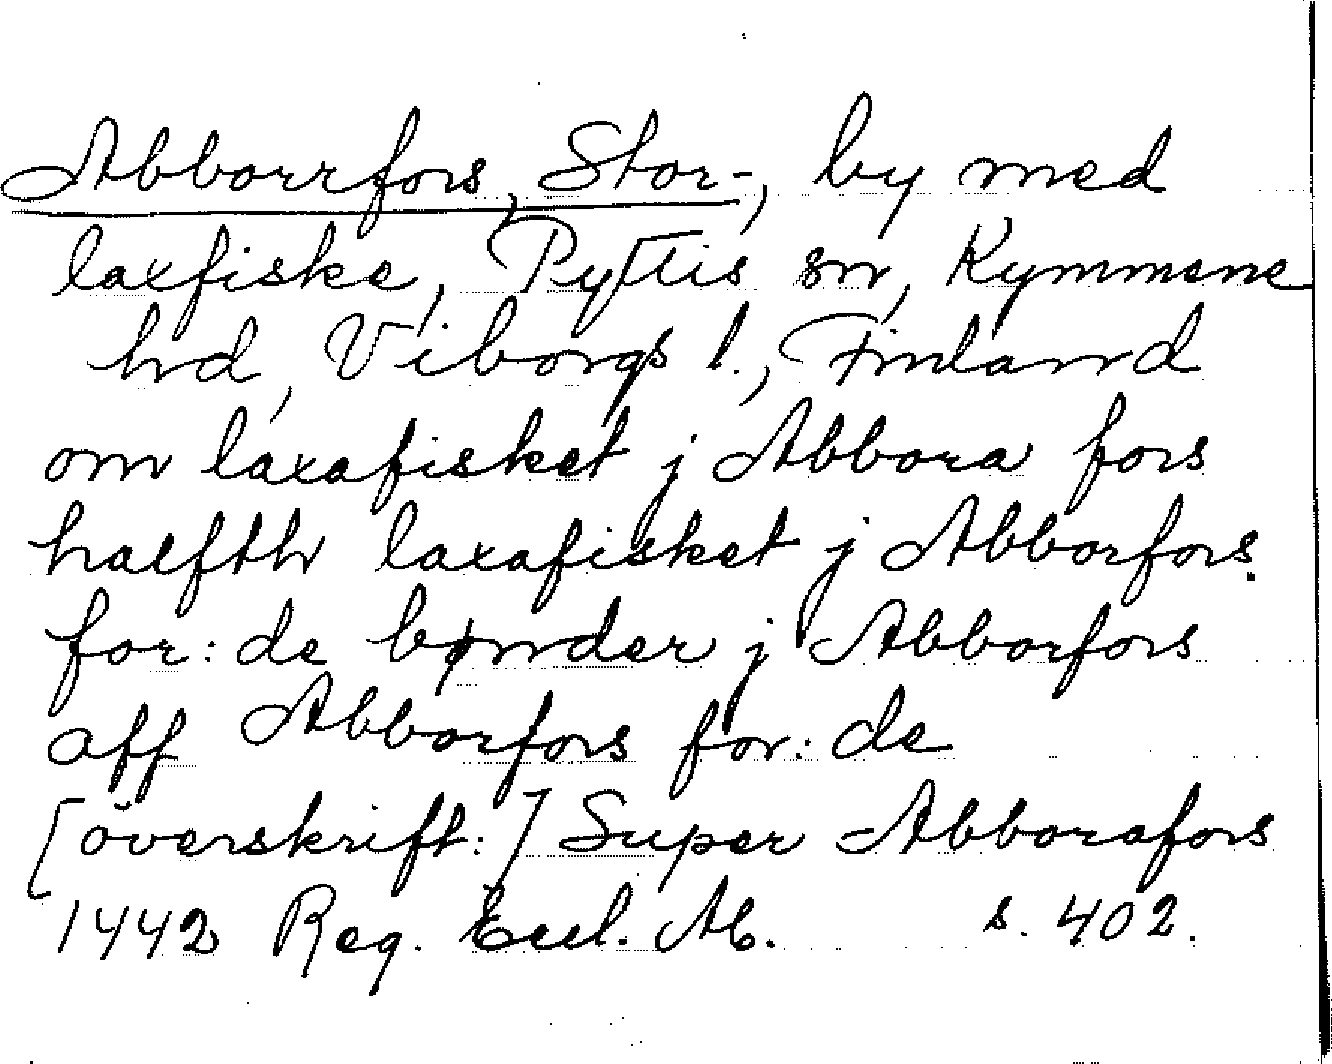 Abborrfors, Stor-, by med
laxfiske, Pyttis sn, Kymmene
hd, Viborgs l., Finland
om laxafisket j Abbora fors
halfth laxafisket j Abborfors.
for: de bønder j Abborfors
aff Abborfors for: de
[överskrift:] Super Abborafors
1442 Reg. Eccl. Ab. s. 402.